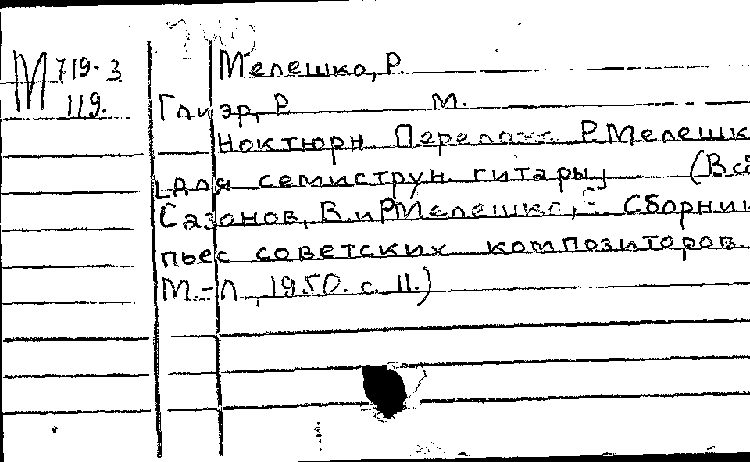 М 719-3
119.
Мелешко, Р.
Глиэр, Р М.
Ноктюрн Перелож. Р.Мелешк
[для семиструн. гитары] (Всб
Сазонов, В. и Р.Мелешко, - Сборник
пьес советских композиторов.
М.-Л, 1950. с 11.)